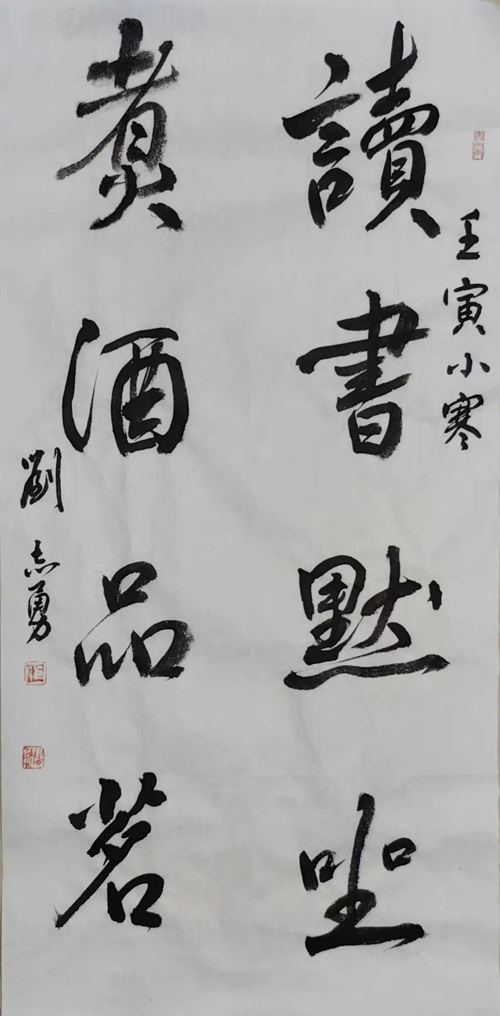 壬寅小寒
讀書默坐
煮酒品茗
劉志勇